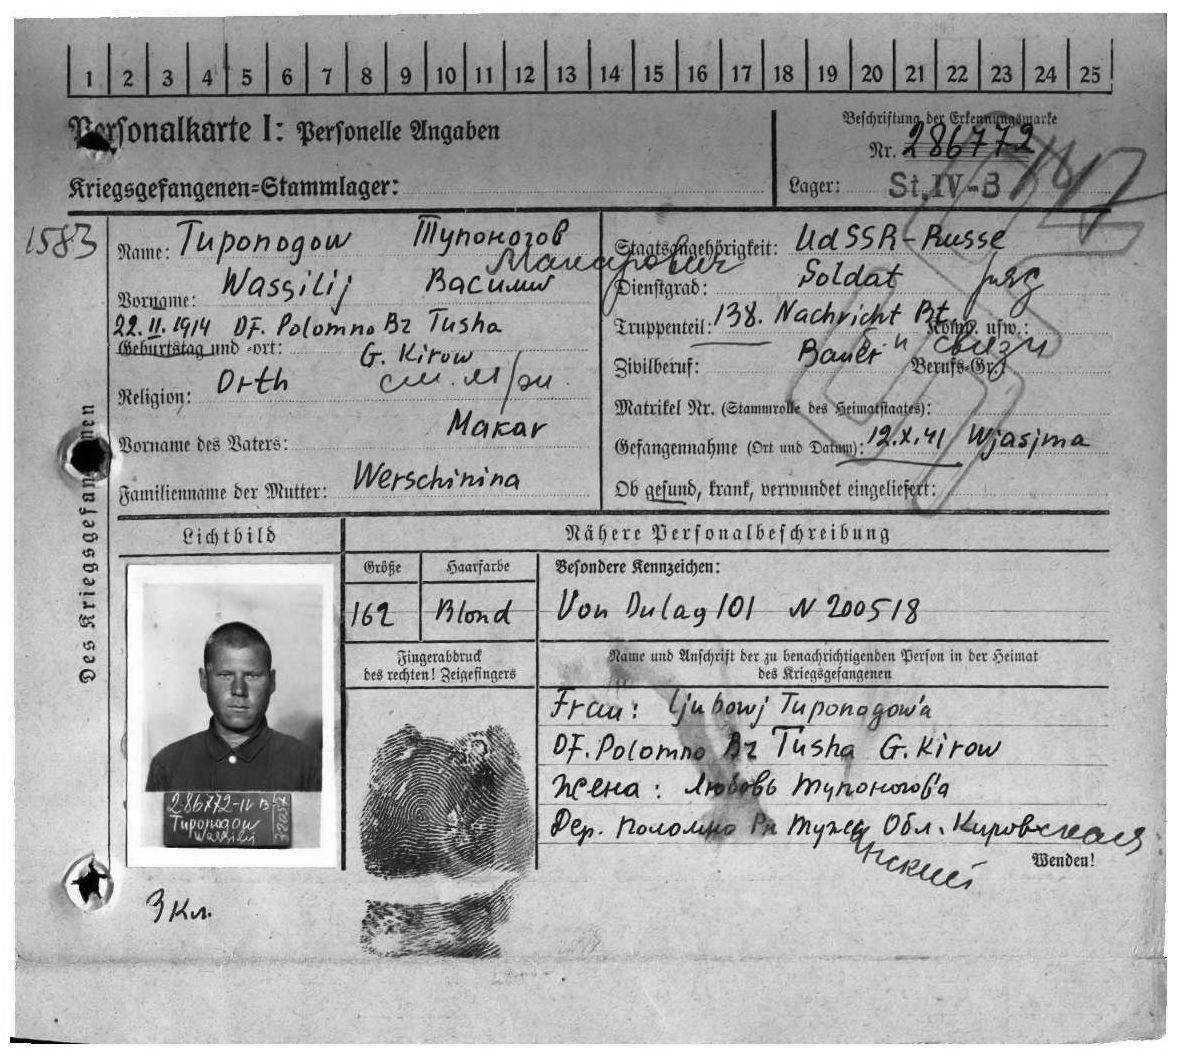 1 2 3 4 5 6 7 8 9 10 11 12 13 14 15 16 17 18 19 20 21 22 23 24 25
Personalkarte I: Personelle Angaben
Beschriftung der Erkennungsmarke
Nr. 286772
Kriegsgefangenen=Stammlager:
Lager: St. IV-B
1583
Des Kriegsgefangenen
Name: Tuponogow Тупоногов
Макарович
Vorname: Wassilij Василий
22. II. 1914 DF. Polomno Bz Tusha
Geburtstag und -ort: G. Kirow
Religion: Orth
Vorname des Vaters: Makar
Familienname der Mutter: Werschinina
Staatsangehörigkeit: UdSSR-Russe
Dienstgrad: Soldat
Truppenteil: 138. Nachricht Bt. Komp. usw.:
б-н связи
Zivilberuf: Bauer Berufs-Gr.:
Matrikel Nr. (Stammrolle des Heimatstaates):
Gefangennahme (Ort und Datum): 12.X.41 Wjasjma
Ob gesund, krank, verwundet eingeliefert:
Lichtbild
Nähere Personalbeschreibung
Größe
Haarfarbe
Besondere Kennzeichen:
162
Blond
Von Dulag 101 N 200518
Fingerabdruck
des rechten! Zeigefingers
Name und Anschrift der zu benachrichtigenden Person in der Heimat
des Kriegsgefangenen
Frau: Ljubowj Tuponogow'a
DF. Polomno Bz Tusha G. Kirow
Жена: Любовь Тупоногов'а
Дер. Поломно Рн Тужа Обл. Кировская
нский
Wenden!
286772-IV B
Tuponogow
Wassilij
3 кл.